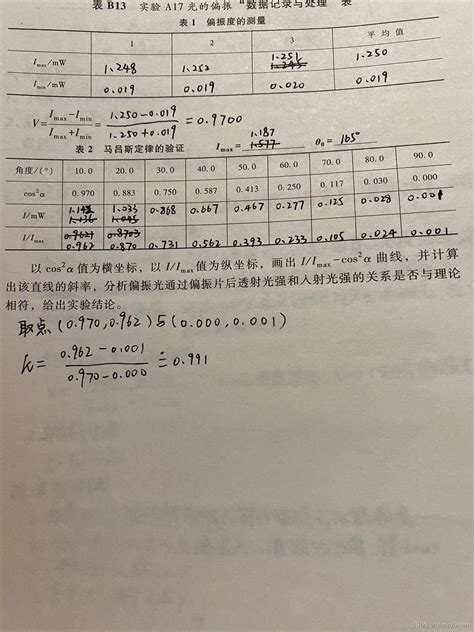 表 B13 实验 A17 光的偏振 "数据记录与处理" 表
表 1 偏振度的测量
1 2 3 平均值
Imax/mW 1.248 1.252 1.251 1.245 1.250
Imin/mW 0.019 0.019 0.020 0.019
V = (Imax − Imin)/(Imax + Imin) = (1.250−0.019)/(1.250+0.019) = 0.9700
表 2 马吕斯定律的验证 Imax = 1.187 1.577 θ0 = 165°
角度/(°) 10.0 20.0 30.0 40.0 50.0 60.0 70.0 80.0 90.0
cos²α 0.970 0.883 0.750 0.587 0.413 0.250 0.117 0.030 0.000
I/mW 1.136 1.033 1.045 0.868 0.667 0.467 0.277 0.125 0.028 0.001
I/Imax 0.962 0.870 0.731 0.562 0.393 0.233 0.105 0.024 0.001
以 cos²α 值为横坐标，以 I/Imax 值为纵坐标，画出 I/Imax−cos²α 曲线，并计算
出该直线的斜率，分析偏振光通过偏振片后透射光强和入射光强的关系是否与理论
相符，给出实验结论。
取点 (0.970, 0.962) 与 (0.000, 0.001)
k = (0.962−0.001)/(0.970−0.000) ≐ 0.991